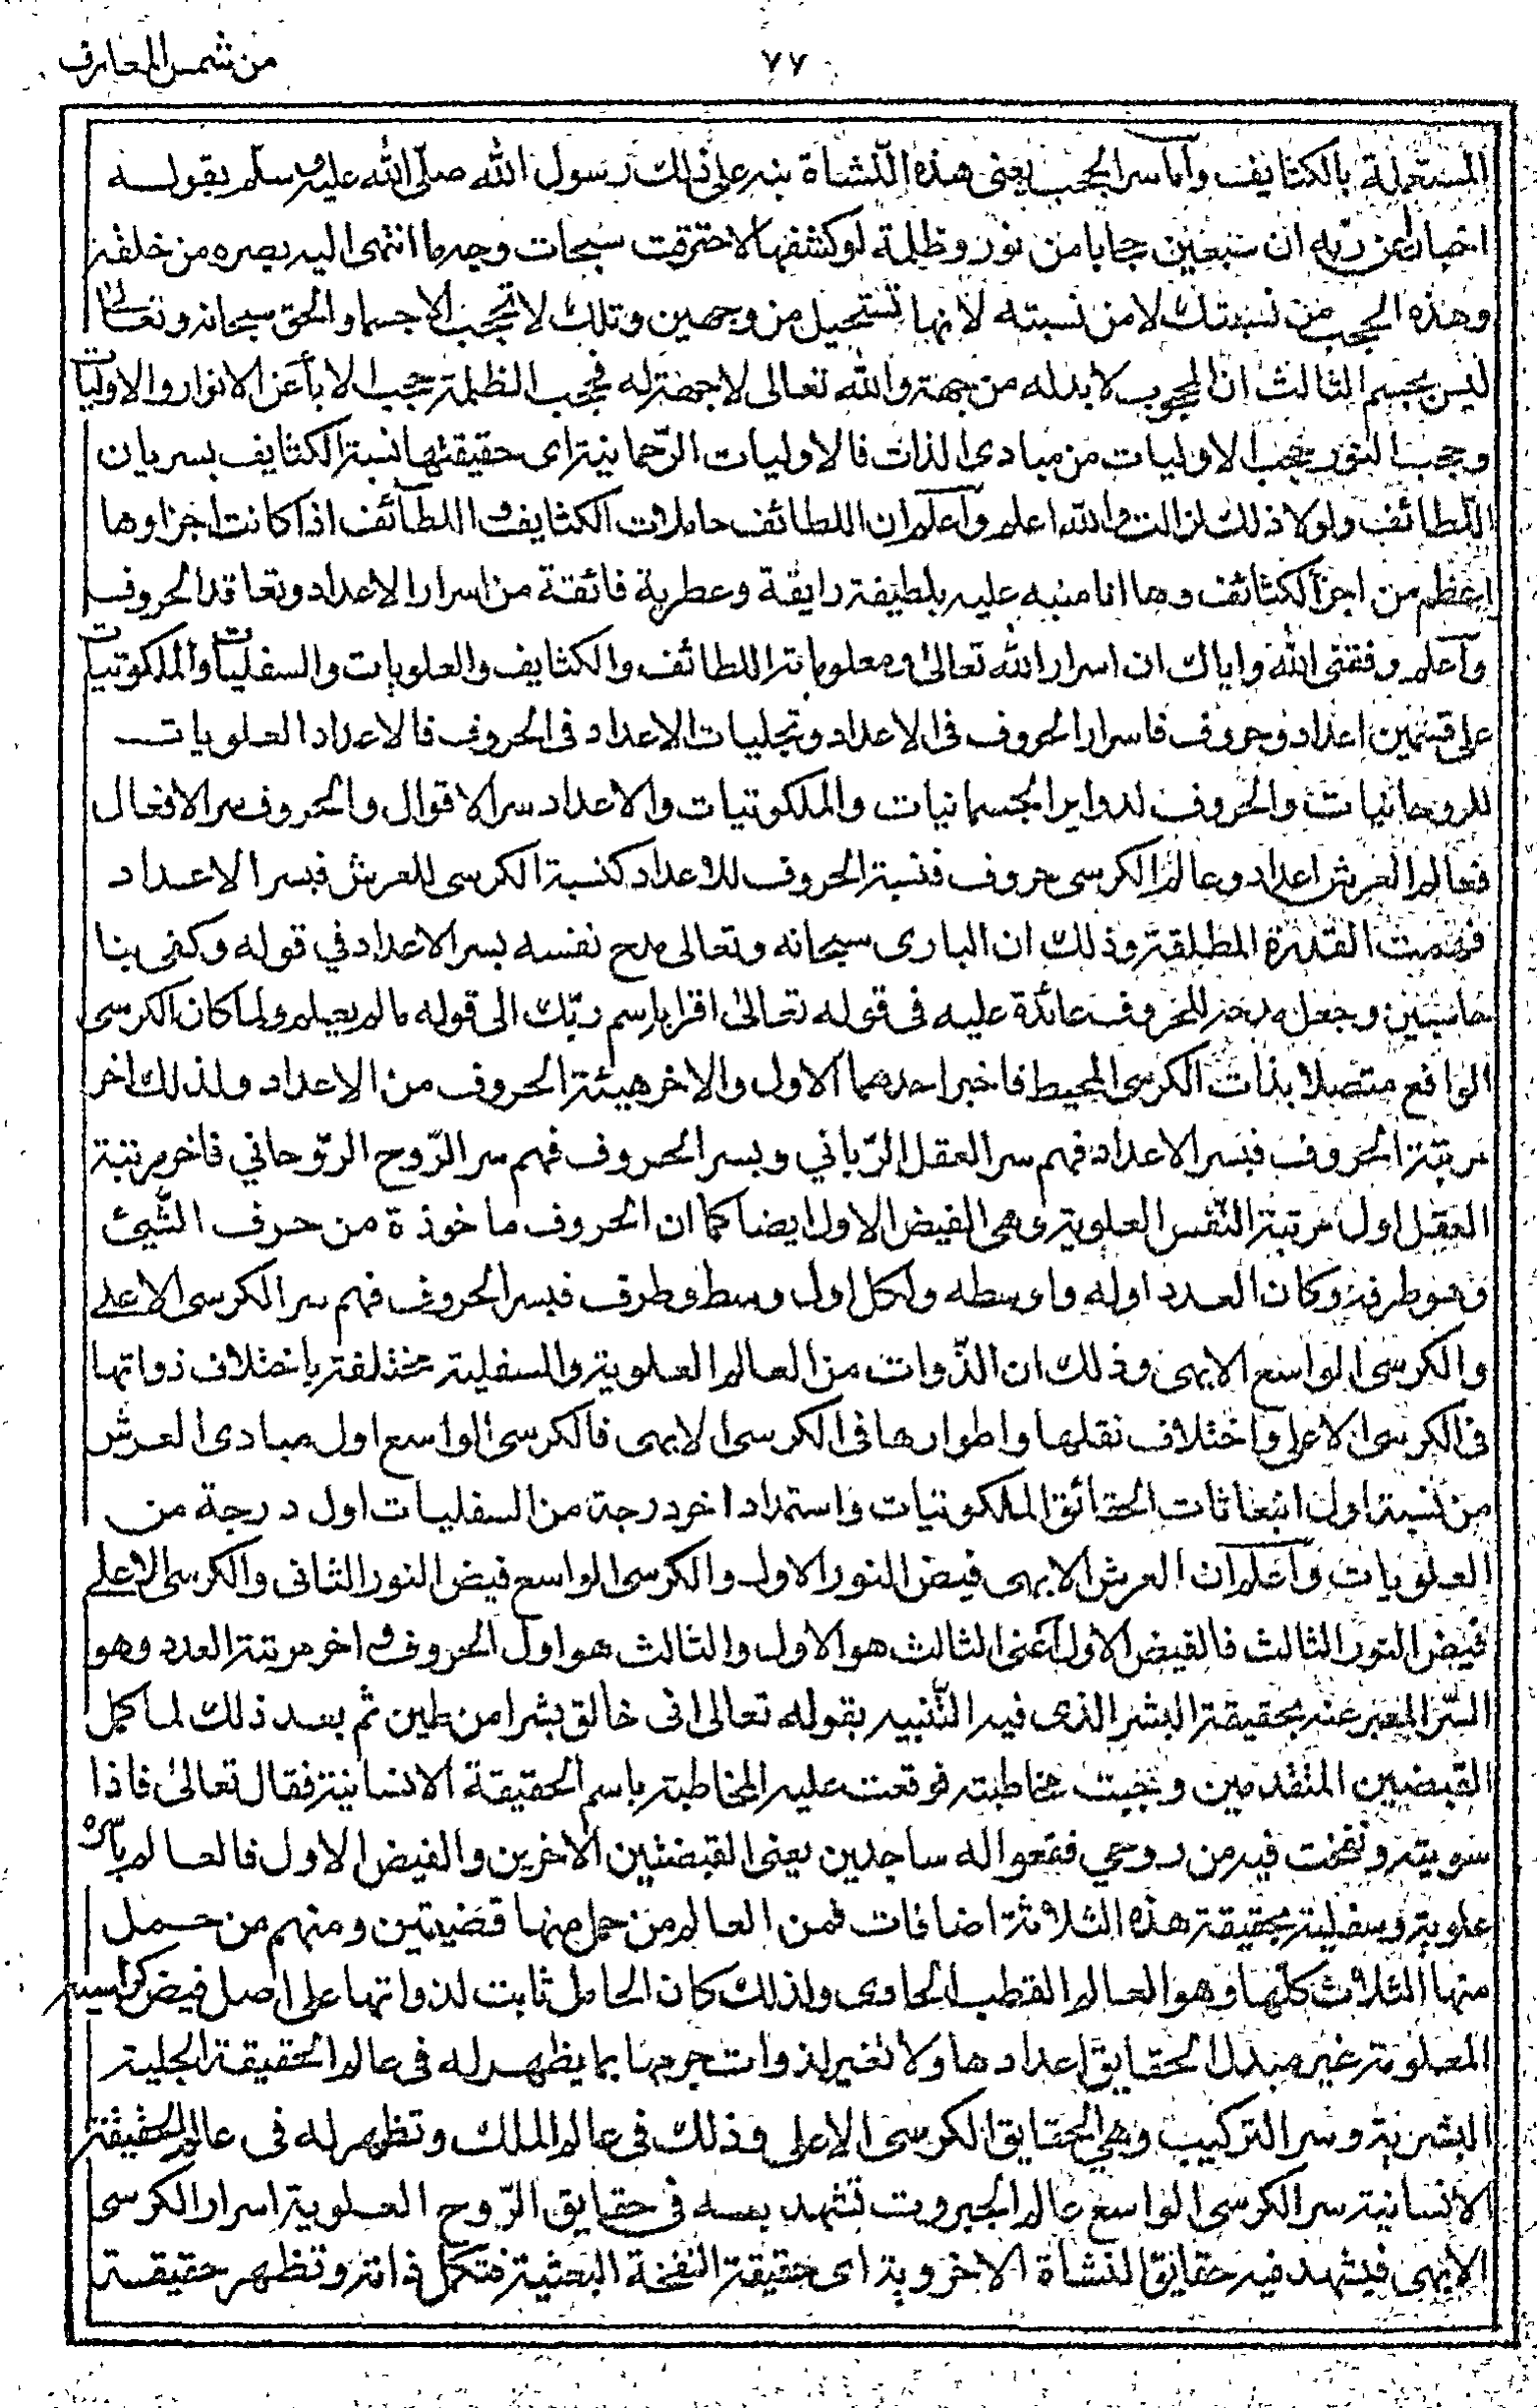 من شمس المعارف
٧٧
المستعملة بالكثايف وآما سر الحجب يعنى هذه النشاة نبه على ذلك رسول الله صلى الله عليه وسلم بقوله
اخبارا عن ربه ان سبعين حجابا من نور وظلمة لو كشفها لاحترقت سبحات وجهه ما انتهى اليه بصره من خلقه
وهذه الحجب من نسبتك لا من نسبته لانها تستحيل من وجهين وتلك لا تحجب الاجسما والحق سبحانه وتعالى
ليس بجسم الثالث ان المحجوب لا بد له من جهة والله تعالى لا جهة له فحجب الظلمة حجب الاباعن الانوار والاوليات
وحجب النور حجب الاوليات من مبادى الذات فالاوليات الرحمانية اى حقيقتها نسبة الكثايف بسريان
اللطائف ولولا ذلك لزالت والله اعلم وآعلم ان اللطائف حاملات الكثايف واللطآئف اذا كانت اجزاوها
اعظم من اجزا الكثائف وها انا منبه عليه بلطيفة رايقة وعطرية فائقة من اسرار الاعداد وتعاقد الحروف
وآعلم وفقنى الله واياك ان اسرار الله تعالى ومعلوماته اللطائف والكثايف والعلويات والسفليات والملكوتيات
على قسمين اعداد وحروف فاسرار الحروف فى الاعداد وتجليات الاعداد فى الحروف فالاعداد العلويات
للروحانيات والحروف لدواير الجسمانيات والملكوتيات والاعداد سر الاقوال والحروف سر الافعال
فعالم العرش اعداد وعالم الكرسى حروف فنسبة الحروف للاعداد كنسبة الكرسى للعرش فبسر الاعداد
فهمت القدرة المطلقة وذلك ان البارى سبحانه وتعالى مدح نفسه بسر الاعداد في قوله وكفى بنا
حاسبين وجعل الحروف عائدة عليه فى قوله تعالى اقرا باسم ربك الى قوله ما لم يعلم ولما كان الكرسى
الواقع متصلا بذات الكرسى المحيط فاخبر احدهما الاول والاخر هيئة الحروف من الاعداد ولذلك اخر
مرتبة الحروف فبسر الاعداد فهم سر العقل الرباني وبسر الحروف فهم سر الروح الروحاني فاخر مرتبة
العقل اول مرتبة النفس العلوية وهى الفيض الاول ايضا كما ان الحروف ماخوذة من حرف الشيئ
وهو طرفه وكان العدد اوله واوسطه ولكل اول وسط وطرف فبسر الحروف فهم سر الكرسى الاعلى
والكرسى الواسع الابهى وذلك ان الذوات من العالم العلوية والسفلية مختلفة باختلاف ذواتها
فى الكرسى الاعلى واختلاف نقلها واطوارها فى الكرسى الابهى فالكرسى الواسع اول مبادى العرش
من نسبة اول انبعاثات الحقائق الملكوتيات واستمداد اخر درجة من السفليات اول درجة من
العلويات وآعلم ان العرش الابهى فيض النور الاول والكرسى الواسع فيض النور الثانى والكرسى الاعلى
فيض النور الثالث فالفيض الاول اعنى الثالث هو الاول والثالث هو اول الحروف واخر مرتبة العدد وهو
السر المعبر عنه بحقيقة البشر الذى فيه التنبيه بقوله تعالى انى خالق بشرا من طين ثم بعد ذلك لما كمل
القبضيين المتقدمين وتجيت مخاطبته فوقعت عليه المخاطبة باسم الحقيقة الانسانية فقال تعالى فاذا
سويته ونفخت فيه من روحي فقعوا له ساجدين يعنى القبضتين الاخرين والفيض الاول فالعالم باسره
علوية وسفلية بحقيقة هذه الثلاثة اضافات فمن العالم من حمل منها قضيتين ومنهم من حمل
منها الثلاث كلها وهو العالم القطب الحاوى ولذلك كان الحامل ثابت لذواتها على اصل فيض كراسيه
المعلومة غير مبدل الحقايق اعدادها ولا تغير لذوات جرمها بما يظهر له فى عالم الحقيقة الجلية
البشرية وسر التركيب وهي الحقايق الكرسى الاعلى وذلك فى عالم الملك وتظهر له فى عالم الحقيقة
الانسانية سر الكرسى الواسع عالم الجبروت تشهد بسه فى حقايق الروح العلوية اسرار الكرسى
الابهى فيشهد فيه حقايق النشاة الاخروية اى حقيقة النفخة البعثية فتكمل ذاته وتظهر حقيقته